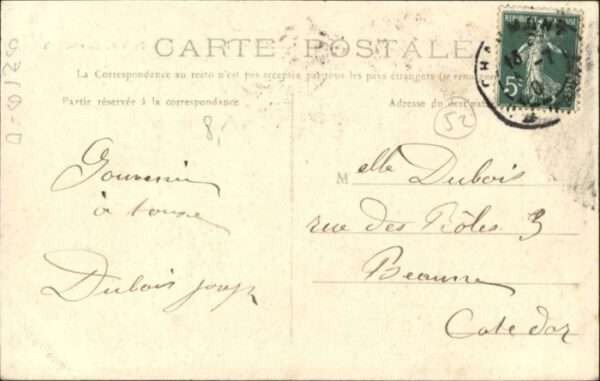 CARTE POSTALE
La Correspondance au recto n'est pas acceptée par tous les pays étrangers (se renseigner
Partie réservée à la correspondance
Adresse du destinat
RÉPUBLIQUE FRANÇAISE
5c
CHA
52
8,
Souvenir
à tous
Dubois
Melle Dubois
rue des Rôles 3
Beaune
Cote d'or